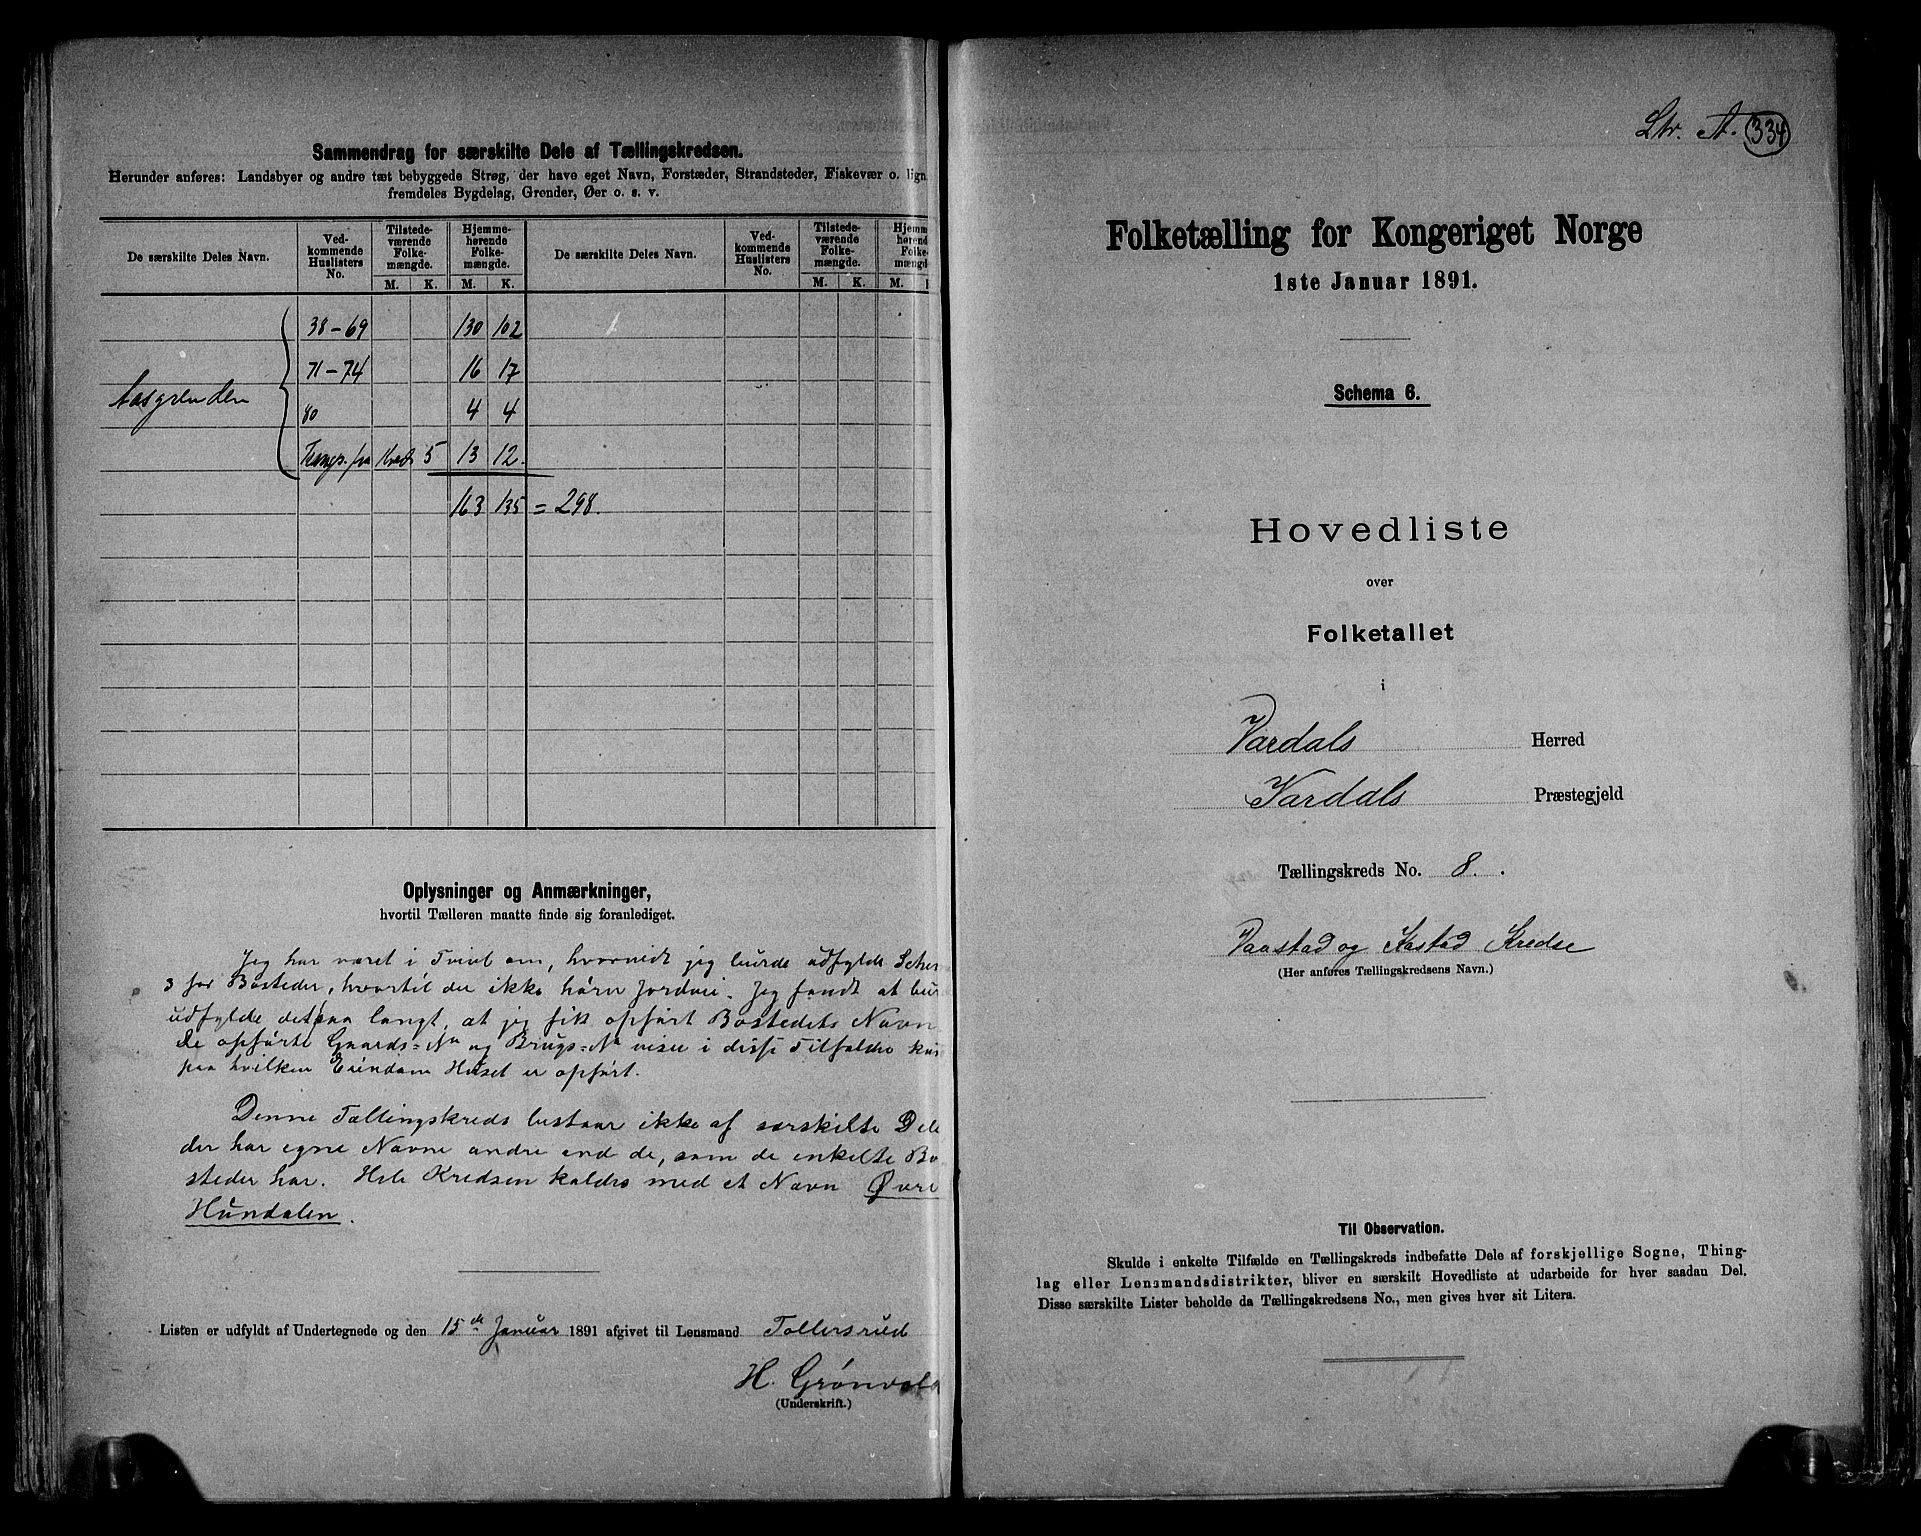 Sammendrag for særskilte Dele af Tællingskredsen.
Herunder anføres: Landsbyer og andre tæt bebyggede Strøg, der have eget Navn, Forstæder, Strandsteder, Fiskevær o. lign.
fremdeles Bygdelag, Grender, Øer o. s. v.
De særskilte Deles Navn. Ved-kommende Huslisters No. Tilstede-værende Folke-mængde. Hjemme-hørende Folke-mængde. De særskilte Deles Navn. Ved-kommende Huslisters No. Tilstede-værende Folke-mængde. Hjemm hørend Folke- mængd
M. K. M. K. M. K. M.
38-69 130 102
71-74 16 17
Aasgrenden
80 4 4
fra Kreds 5 13 12.
163 135 = 298.
Oplysninger og Anmærkninger,
hvortil Tælleren maatte finde sig foranlediget.
Jeg har været i Tvivl om, hvorvidt jeg burde udfylde Schem
3 for Bosteder, hvortil der ikke hører Jordvei. Jeg fandt at bur
udfylde det saa langt, at jeg fik opført Bostedets Navn
De opførte Gaards-No og Brugs-No viser i disse Tilfælde kun
paa hvilken Eiendom Huset er opført.
Denne Tællingskreds bestaar ikke af særskilte Dele
der har egne Navne andre end de, som de enkelte Bo
steder har. Hele Kredsen kaldes med et Navn Øvre
Hundalen.
Listen er udfyldt af Undertegnede og den 15de Januar 1891 afgivet til Lensmand Tollersrud
H. Grønvold
(Underskrift.)
Ltr. A. 334
Folketælling for Kongeriget Norge
1ste Januar 1891.
Schema 6.
Hovedliste
over
Folketallet
i
Vardals Herred
Vardals Præstegjeld
Tællingskreds No. 8.
Vaastad og Kastad Kredse
(Her anføres Tællingskredsens Navn.)
Til Observation.
Skulde i enkelte Tilfælde en Tællingskreds indbefatte Dele af forskjellige Sogne, Thing-
lag eller Lensmandsdistrikter, bliver en særskilt Hovedliste at udarbeide for hver saadan Del.
Disse særskilte Lister beholde da Tællingskredsens No., men gives hver sit Litera.